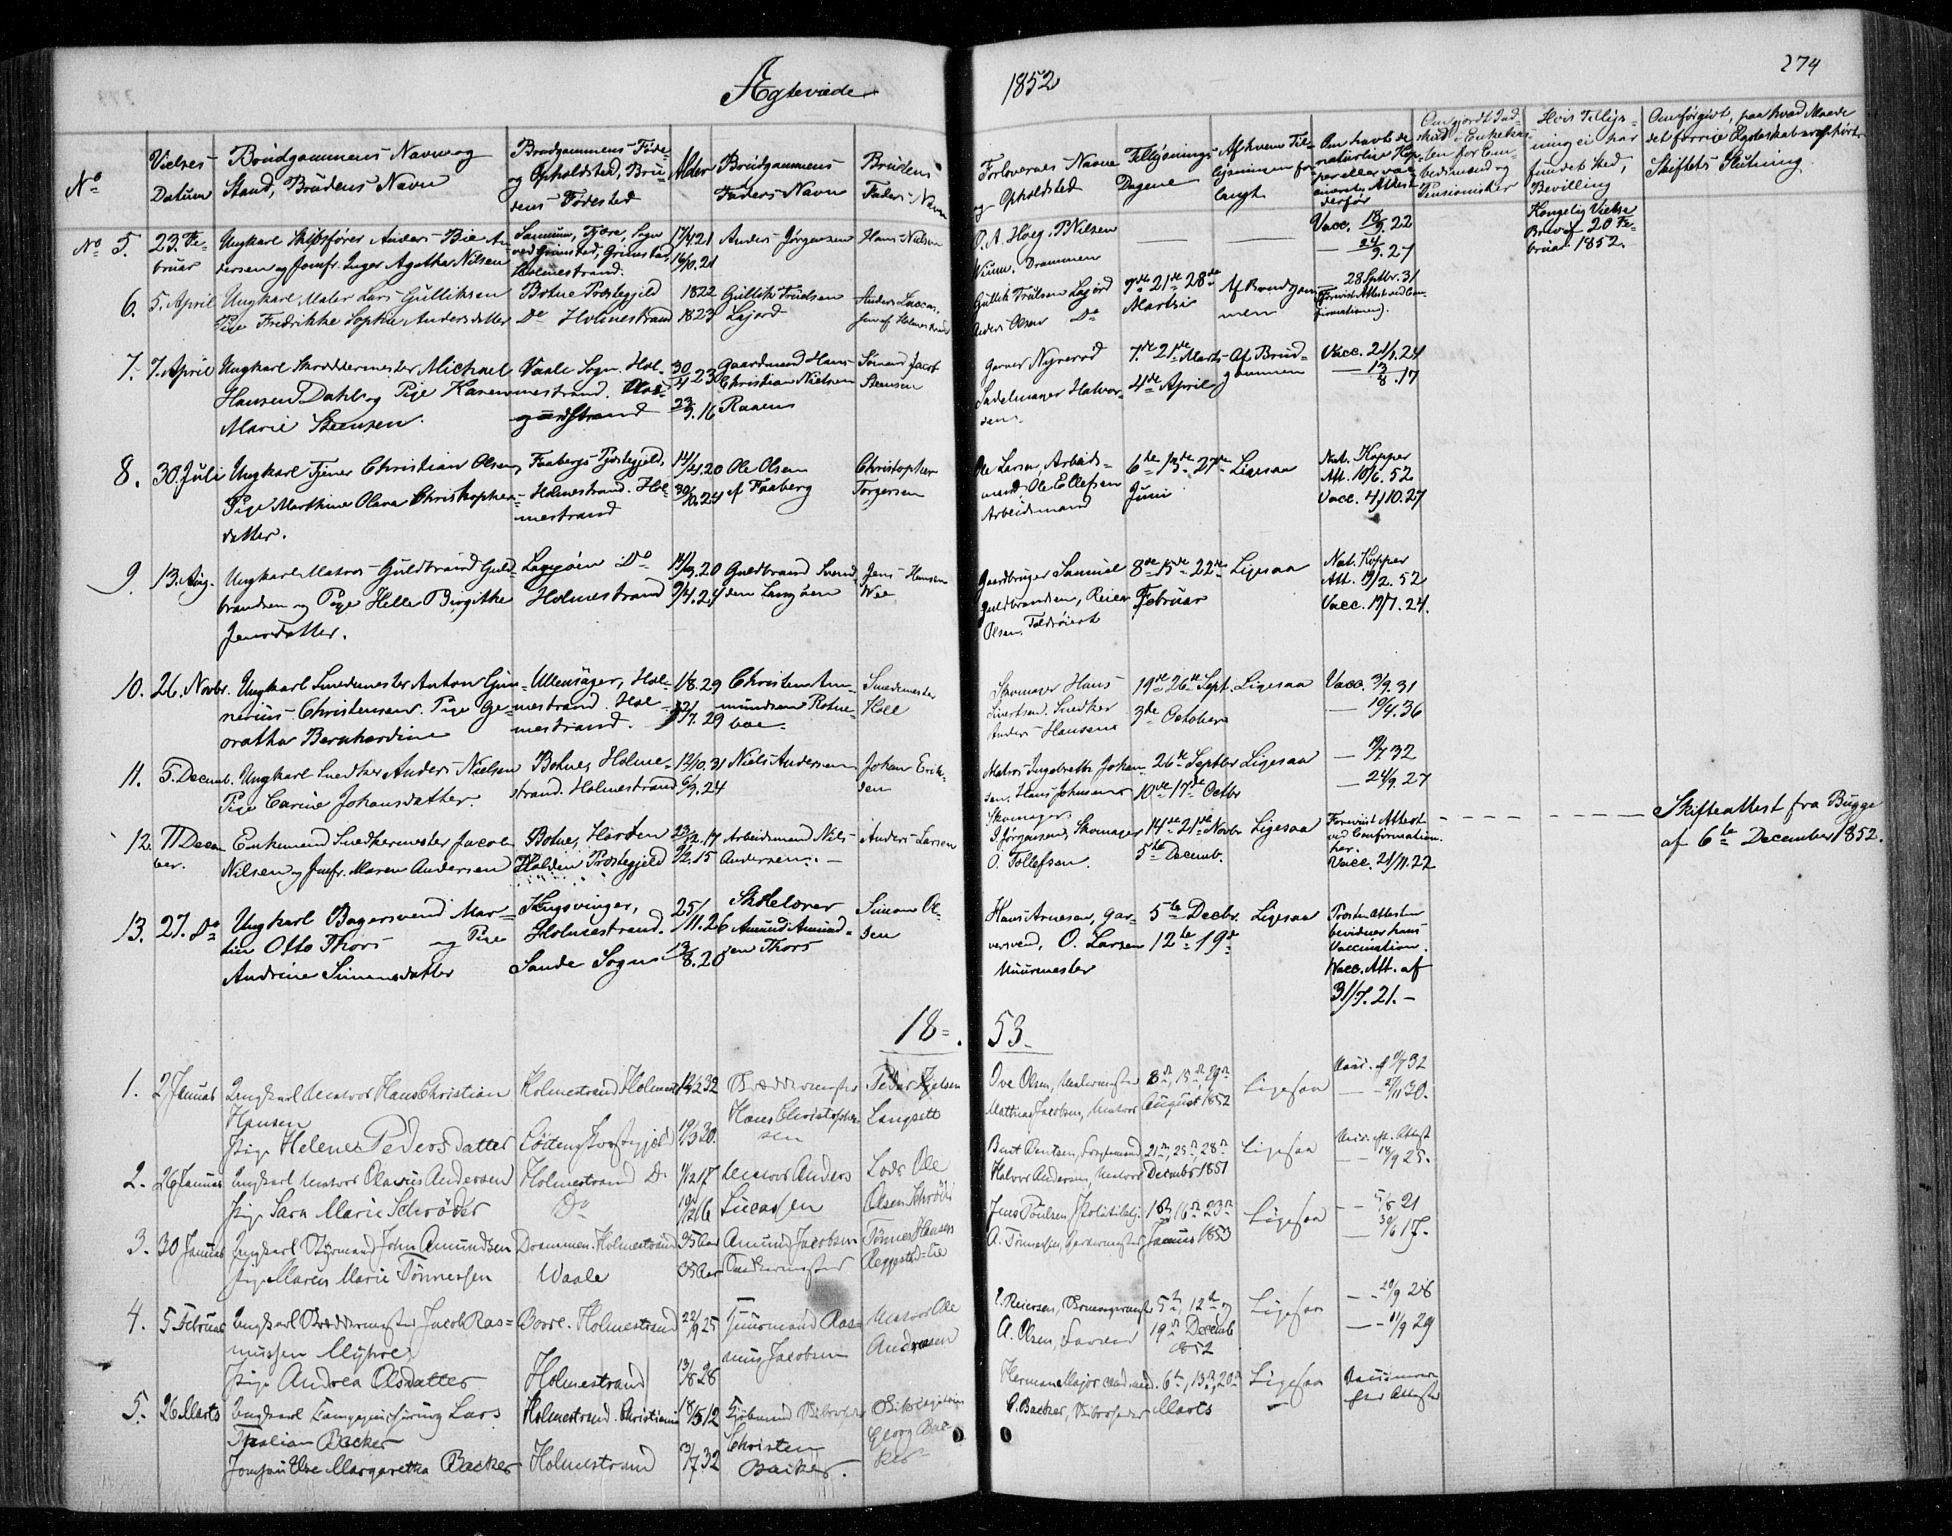 Ægteviede
1852
274
No
Vielses-
Datum
Brudgommens Navn og
Stand, Brudens Navn
Brudgommens Føde-
og Opholdsted, Bru-
dens Fødested
Alder
Brudgommens
Faders Navn
Brudens
Faders Navn
Forlovernes Navne
og Opholdsted
Tillysnings
Dagene
Af hvem Til-
lysningen for-
langt
Om havt de
naturlige Kop-
per eller vac-
cinerte, Attest
derfor
Om gjort Ind-
skud i Enkekas-
sen for Em-
bedsmænd og
Pensionister
Hvis Tillys-
ning ei har
fundet Sted,
Bevilling
Om forgivt, paa hvad Maade
det forrige Ægteskab er ophørt
Skiftets Slutning.
No 5.
23. Fe-
bruar
Ungkarl Skibsfører Anders Bie An-
dersen og Jomfr. Inger Agathe Nilsen
Sogn
ved Grimstad, Grimstad,
Holmestrand.
17/4 21
16/10.21
Anders Jørgensen
Hans Nielsen
O. A. Høeg. P. Nilsen
Drammen
Vacc. 18/9 22
— 24/9.27
Kongelig Vielse
Brev af 20 Fe-
bruar 1852.
6.
5. April
Ungkarl Maler Lars Gulliksen
Pige Fredrikke Sophie Andersdatter
Botne Præstegjeld
Do Holmestrand
1822
1823
Gullik Truelsen
Lajord
Gullik Trulsen Lajord
Anders Olsen Do
7de 21de 28de
Martsi
Af Brudgom-
men
28 Septbr. 31
7.
7. April
Ungkarl Skræddermester Michael
Hansen Dahl og Pige Karen
Marie Steensen.
Vaale Sogn. Hol-
mestrand. Aas-
gaardstrand
30/4 23
23/9.16
Gaardmand Hans
Christian Nielsen
Raaen
Sømand Jacob
Steensen
Garver Nyrerød
Sadelmager Halvor-
sen.
7de 21de Marts
4de April
Af Brud-
gommen
Vacc. 21/1.24
— 13/8.17
8.
30. Juli
Ungkarl Tjener Christian Olsen,
Pige Marthine Olava Christopher-
datter.
Faabergs Præstegjeld,
Holmestrand. Hol-
mestrand
14/4.20
30/10.24
Ole Olsen
af Faaberg
Christopher
Torgersen
Ole Larsen, Arbeids-
mand, Ole Ellefsen
Arbeidsmand
6te 13de 27de
Juni
Ligesaa
Nat. Kopper
Att. 10/6.52
Vacc. 4/10.27
9.
13. Aug.
Ungkarl Matros Guldbrand Guld-
brandsen og Pige Helle Birgithe
Jensdatter.
Langøen Do
Holmestrand
14/3.20
9/4.24
Guldbrand Svend-
sen Langøen
Jens Hansen
Wee
Gaardbruger Samuel
Guldbrandsen, Reier
Olsen, Toldrøiert
8de 15de 22de
Februar
Ligesaa
Nat. Kopper
Att. 19/2.52
Vacc. 19/7.24.
10.
26. Novbr.
Ungkarl Smedemester Anton Gun-
nerius Christensen. Pige Ge-
oratha Bernhardine
Ullensager, Hol-
mestrand. Hol-
mestrand.
1/8.29
12/7.29
Christen Am-
mundsen Rotne-
boe
Smedemester
Holl
Skomager Hans
Sivertsen. Snedker
Anders Hansen
19de 26de Sept.
3de October
Ligesaa
Vacc. 3/9.31
— 10/4.36
11.
5. Decemb.
Ungkarl Snedker Anders Nielsen
Pige Carine Johansdatter.
Botne, Holme-
strand. Holmestrand
12/10.31
6/3.24
Niels Andersen
Johan Erik-
sen
Matros Ingebreth Johan-
sen. Hans Johnsen
Skomager.
26de Septbr
10de 17de Octbr
Ligesaa
— 19/7.32
— 24/9.27
12.
11 Decem-
ber.
Enkemand Snedkermester Jacob
Nilsen og Jomfr. Maren Andersen
Botne, Horten
Holden Præstegjeld
23/12.17
9/2.15
Arbeidsmand Nils
Andersen. —
Anders Larsen
I. Jørgensen, Skomager
O. Tollefsen.
14de 21de Novbr
5te Decemb.
Ligesaa
Forevist Attest
ved Confirmation
her.
Vacc. 21/11.22
Skifteattest fra Bugge
af 6te December 1852.
13.
27. Do
Ungkarl Bagersvend Mar-
tin Otto Thors og Pige
Andrine Simensdatter
Kongsvinger,
Holmestrand.
Sande Sogn
25/11.26
13/8.20
Skolelærer
Amund Amund-
sen Thors
Simon Ol-
sen
Hans Arnesen, Gar-
versvend, O. Larsen
Muurmester
5te Decbr.
12te 19de
Ligesaa
Præsteattesten
bevidner hans
Vaccination.
Vacc. Att. af
31/7.21.—
18 53
1.
2 Januar
Ungkarl Matros Hans Christian
Hansen
Pige Helene Pedersdatter
Holmestrand Holmestr.
Løitens Præstegjeld
19/3 30.
Skræddermester
Hans Christopher-
sen
Peder
Langsett
Ove Olsen, Malermester
Matthias Jacobsen, Matros
8de, 15de, 29de
August 1852
Ligesaa
Vacc. 9/7 32
— 30.
2.
26 Januar
Ungkarl Matros Olavus Andersen
Pige Sara Marie Schrøder
Holmestrand Do
Do
Matros Anders
Lucassen
Lods Ole
Olsen Schrøder
Halvor Andersen, Matros
21de, 25de, 28de
December 1851
Ligesaa
Vacc. eft. Attest
— 18/9 25.
3.
30 Januar
Ungkarl Styrmand John Amundsen
Pige Maren Marie Tønnessen
Drammen. Holmestrand
Waale
35 Aar
35 Aar
Amund Jacobsen
Snedkermester
Tønnes Hansen
Jens Poulsen
A. Tønnessen,
9de, 16de, 23de
Januar 1853
Ligesaa
— 5/8 21
— 30/6 17.
4.
5 Februar
Ungkarl Skræddermester Jacob Ras-
mussen Myhre
Pige Andrea Olsdatter
Borre. Holmestrand
Holmestrand
22/9 25
13/8 26
Huusmand Ras-
mus Jacobsen
Matros Ole
Andersen
P. Reiersen, Skomagermester
A. Olsen,
5te, 12te og
19de Decemb.
1852
Ligesaa
— 20/9 26
— 11/9 29
5.
26 Marts
Ungkarl Lars
Thalian Backer
Jomfru Else Margaretha Backer
Holmestrand. Christiania
Holmestrand
18/5 12
13/7 32
Kjøbmand Skibsreder
Christen
Backer.
Skibscapitain
Georg Bac-
ker
Herman Major
C. Backer, Skibsreder
6te, 13de, 20de
Marts
Ligesaa
Vaccineret
efter Attester